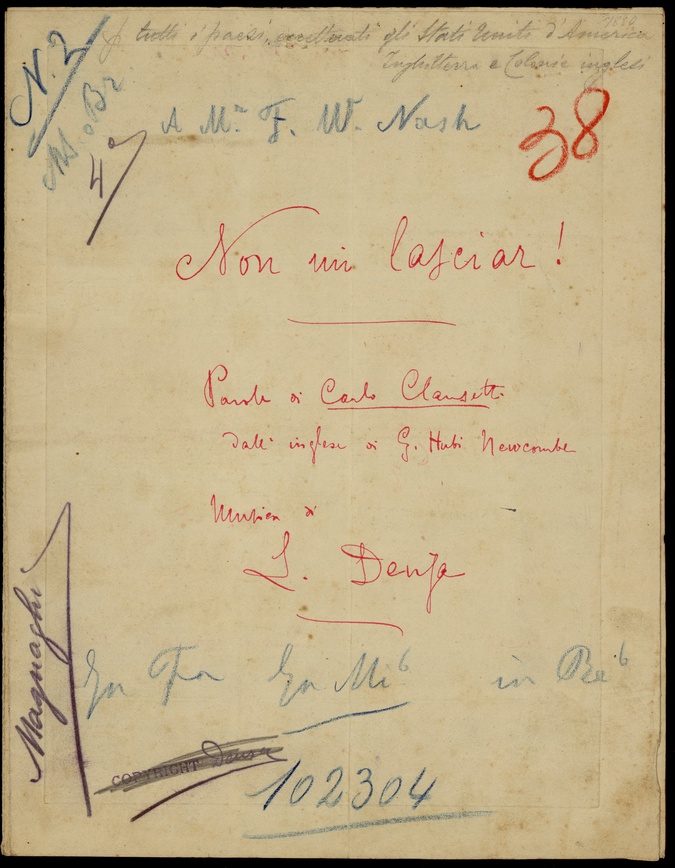 N. 2
p tutti i paesi, eccettuati gli Stati Uniti d'America
Inghilterra e Colonie inglesi
4°
A Mr. F. W. Nash
38
Non mi lasciar!
Parole di Carlo Clausetti
dall' inglese di G. Hubi Newcombe
Musica di
L. Denza
Magnaghi
In Fa In Mi b in Re b
COPYRIGHT Denza
102304